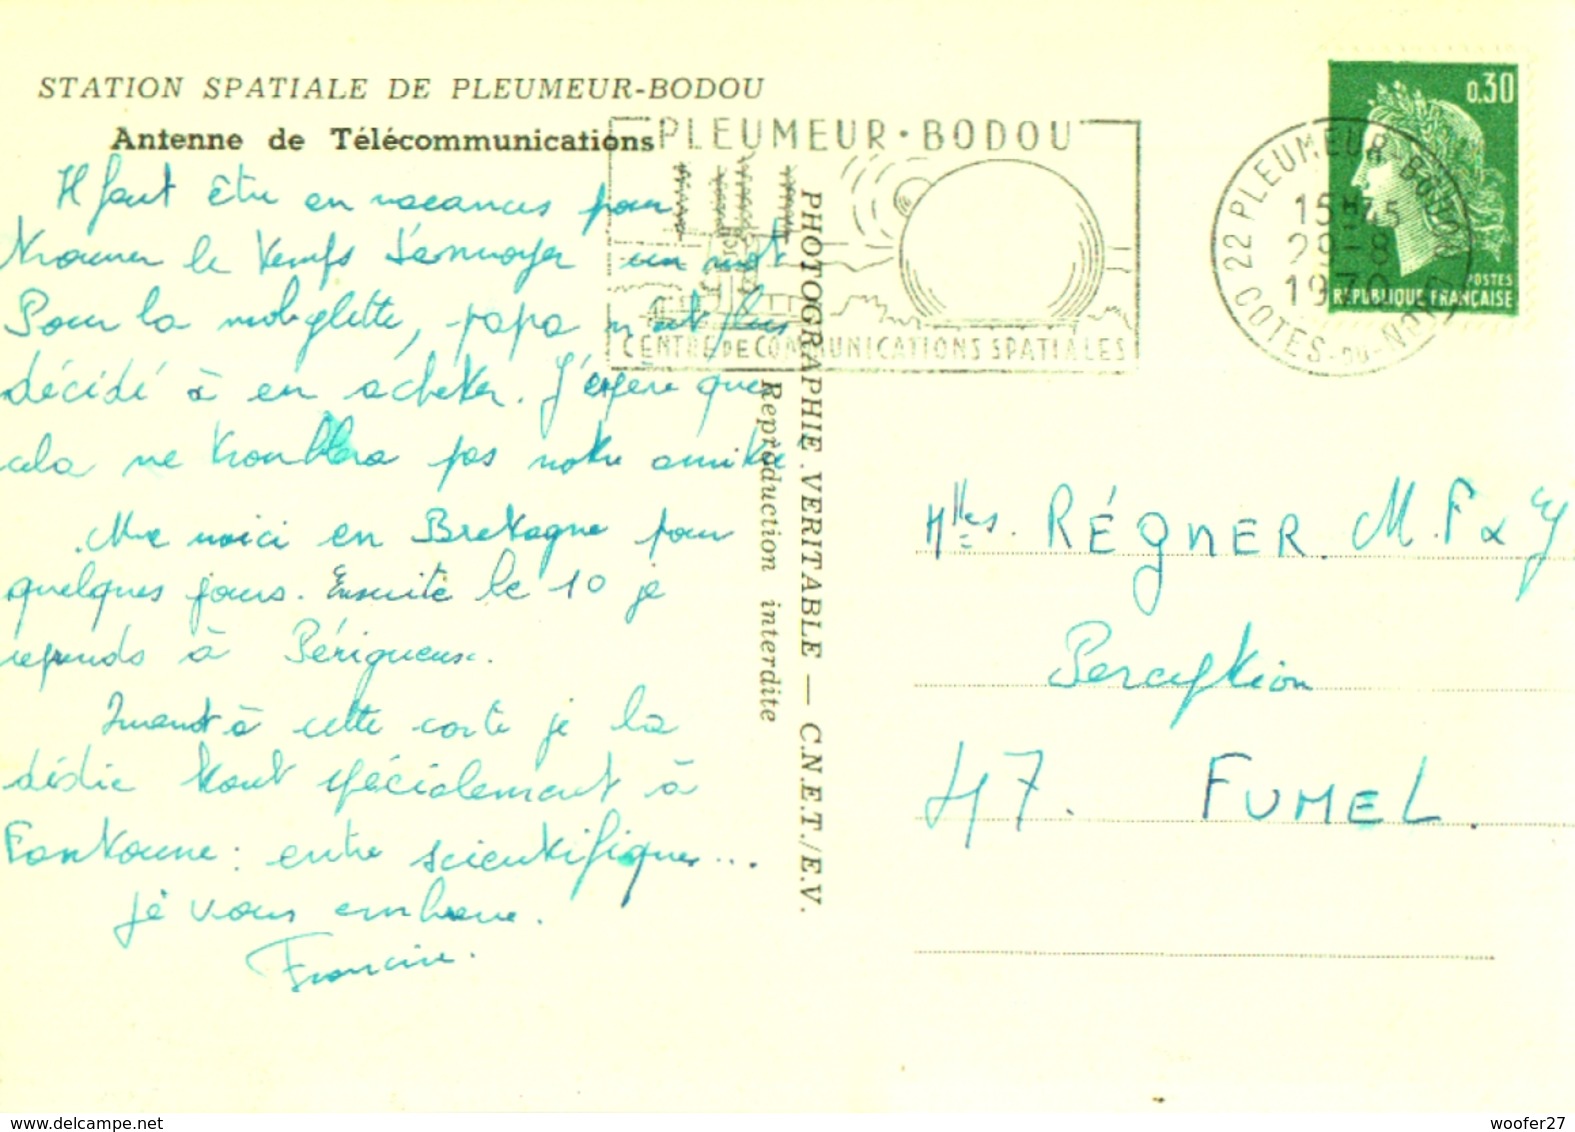 STATION SPATIALE DE PLEUMEUR-BODOU
Antenne de Télécommunications
Il faut être en vacances pour
trouver le temps d'envoyer un mot
Pour la mobylette, papa n'est plus
décidé à en acheter. J'espère que
cela ne troublera pas notre amitié
Me voici en Bretagne pour
quelques jours. Ensuite le 10 je
reprends à Périgueux.
Quant à cette carte je la
dédie tout spécialement à
Fantoune : entre scientifiques...
Je vous embrasse.
Francine.
PLEUMEUR•BODOU
CENTRE DE COMMUNICATIONS SPATIALES
PHOTOGRAPHIE VERITABLE — C.N.E.T./E.V.
Reproduction interdite
0,30
POSTES
REPUBLIQUE FRANÇAISE
22 PLEUMEUR-BODOU
15H45
29-8
1970
COTES-DU-NORD
Mlles. RÉGNER. M.F & Y
Perception
47. FUMEL.
www.delcampe.net
woofer27